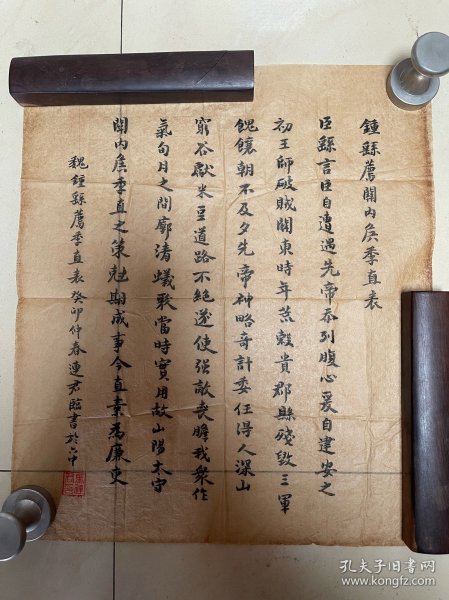 鍾繇薦關內侯季直表
臣繇言臣自遭遇先帝忝列腹心爰自建安之
初王師破賊關東時年荒穀貴郡縣殘毀三軍
餽饟朝不及夕先帝神略奇計委任得人深山
窮谷獻米豆道路不絕遂使强敵喪膽我衆作
氣旬月之間廓清蟻聚當時實用故山陽太守
關內侯季直之策尅期成事今直素為廉吏
魏鍾繇薦季直表癸卯仲春連君臨書於
孔夫子旧书网
www.kongfz.com